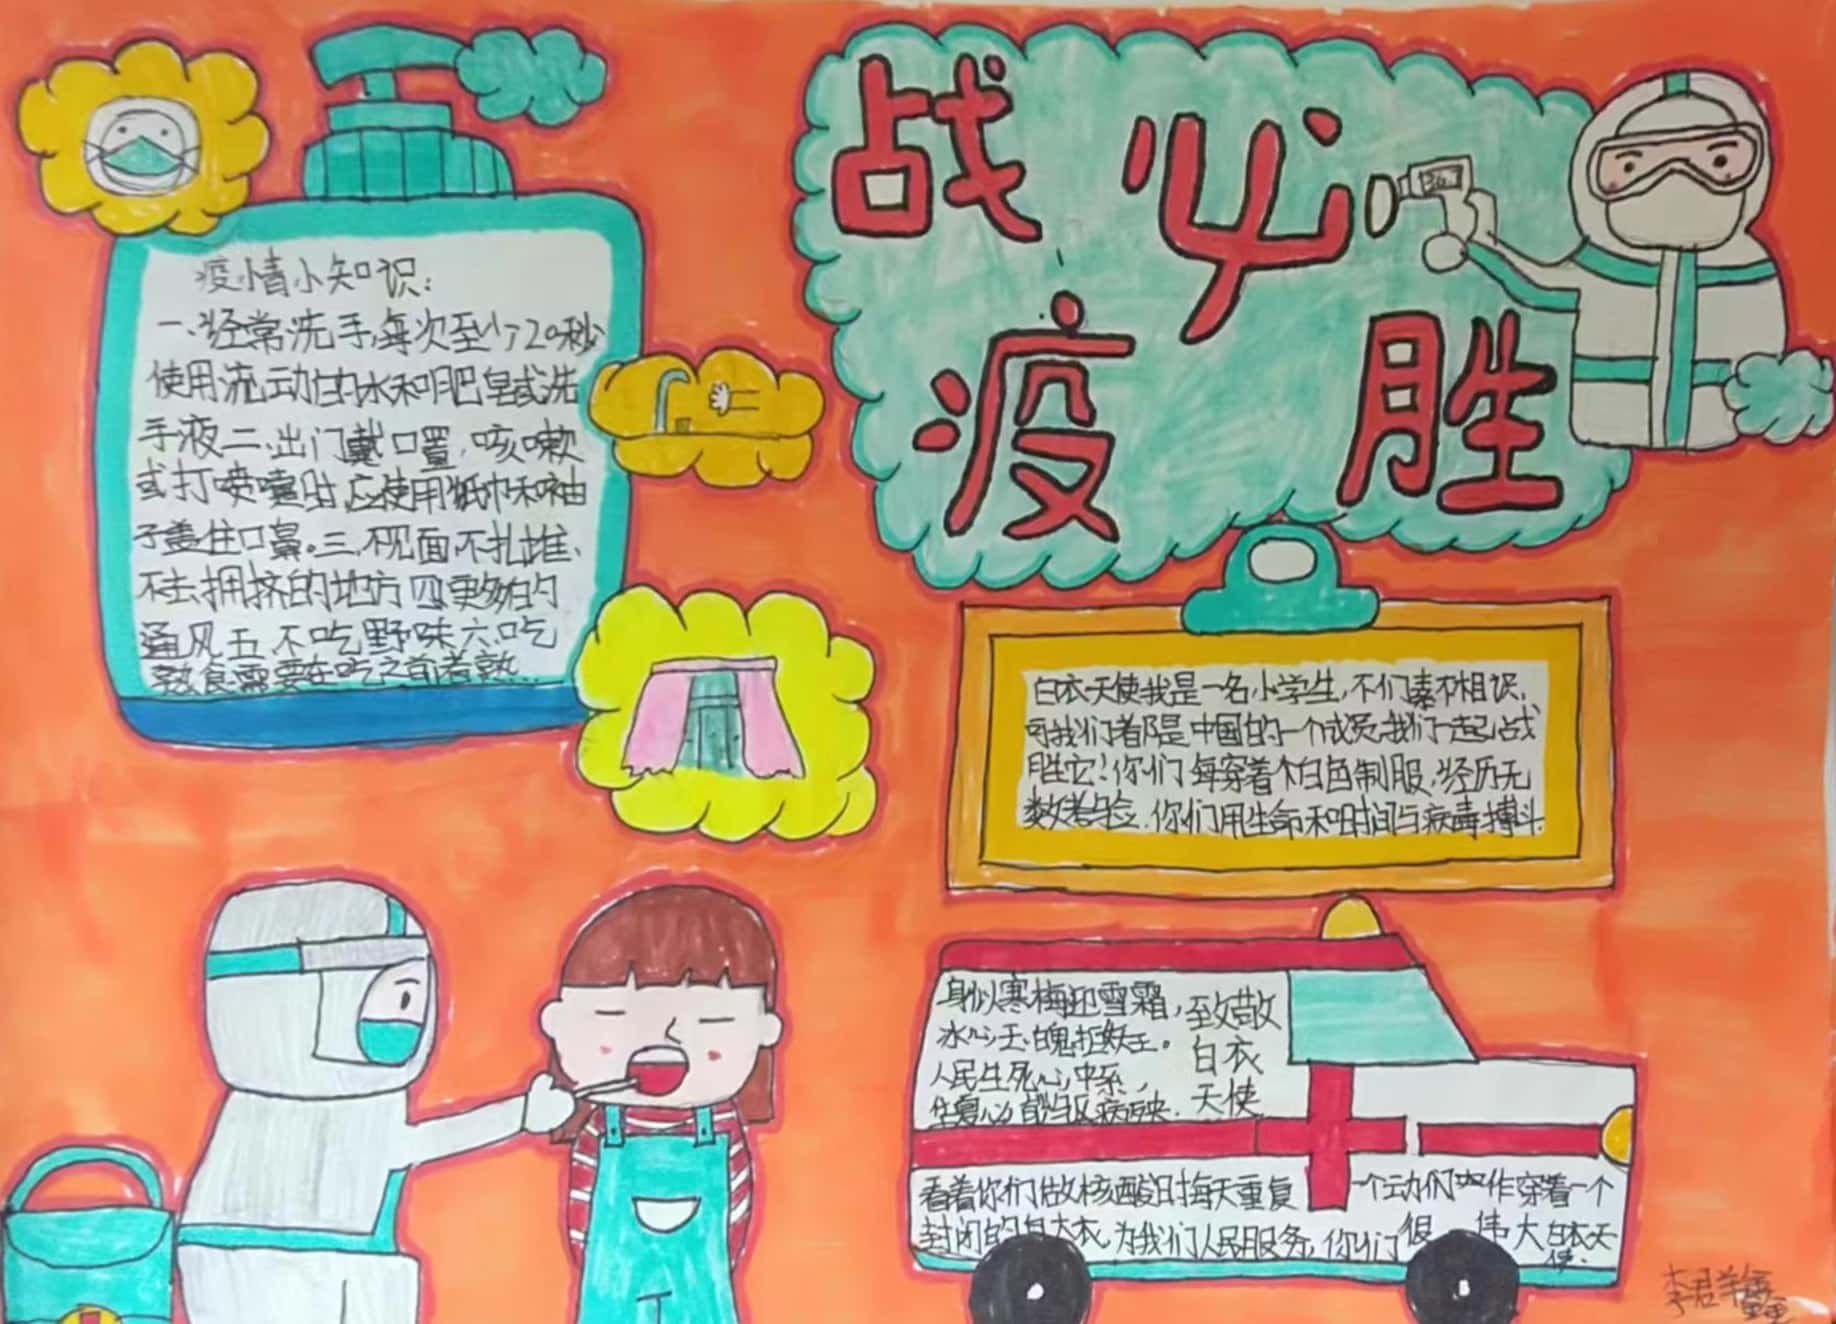 战必
疫胜
36.7
疫情小知识:
一、经常洗手,每次至少20秒
使用流动的水和肥皂或洗
手液二、出门戴口罩,咳嗽
或打喷嚏时,应使用纸巾和袖
子盖住口鼻。三、不见面,不扎堆、
不去拥挤的地方四、更多的
通风五、不吃野味六、吃
熟食需要在吃之前煮熟...
白衣天使我是一名小学生,不们素不相识,
可我们都是中国的一个成员,我们一起战
胜它!你们每穿着个白色制服,经历无
数考验,你们用生命和时间与病毒搏斗
身似寒梅迎雪霜,
冰心玉魄拒妖王。
人民生死心中系,
致敬
白衣
天使
看着你们做核酸时每天重复一个动作穿着一个
封闭的白大衣,为我们人民服务,你们很伟大白衣天
使.